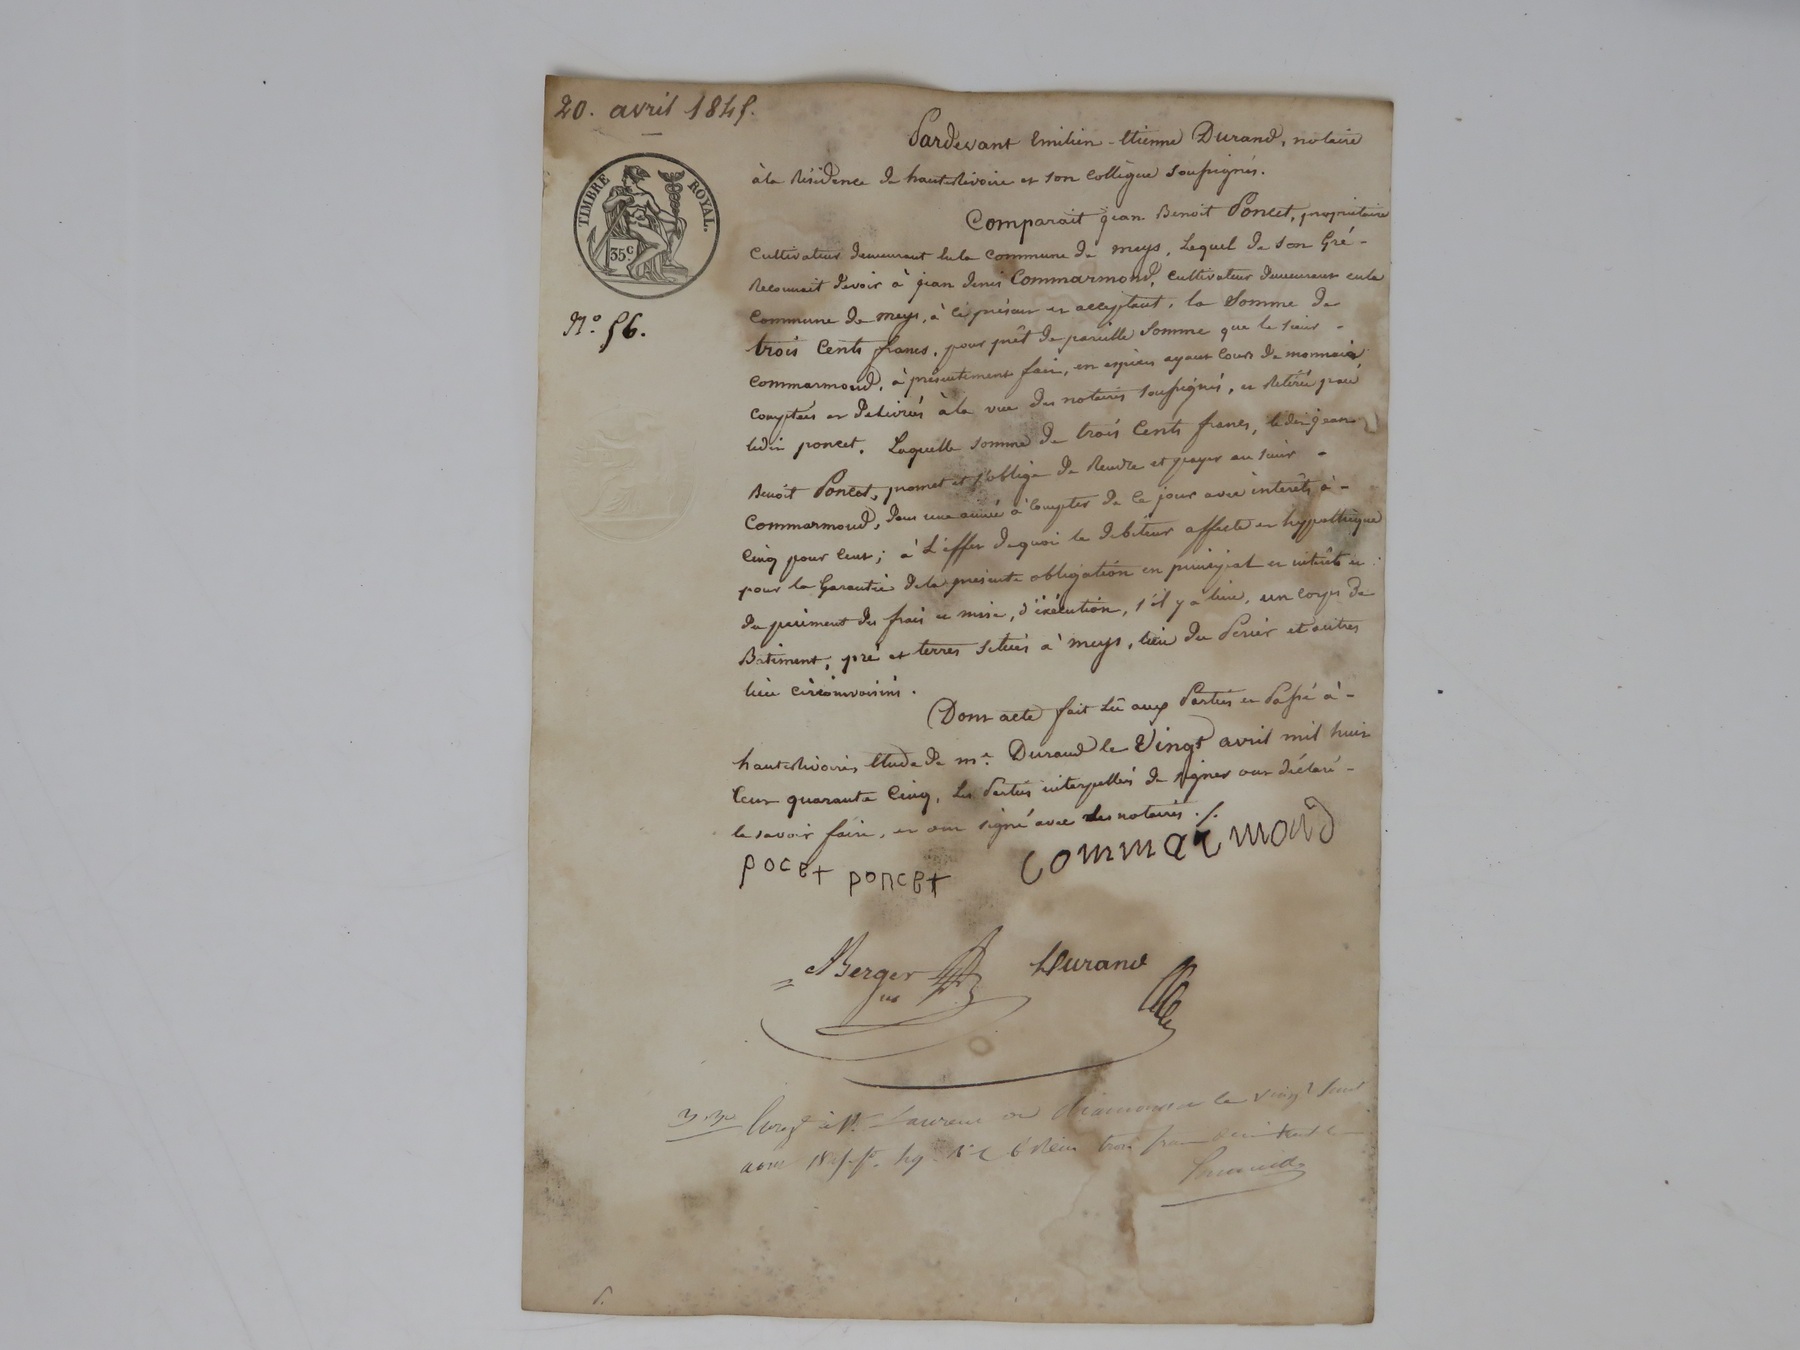 20. avril 1845.
TIMBRE ROYAL.
35 c
N.o 56.
Pardevant Emilien-Etienne Durand, notaire
à la Résidence de hauterivoire et son collègue soussignés.
Comparait jean Benoit Poncet, propriétaire
Cultivateur demeurant en la commune de meys, Lequel de son Gré -
Reconnait devoir à jean denis Commarmond, cultivateur demeurant en la
Commune de meys, à ce présent et acceptant, la Somme de
trois Cents francs, pour prêt de pareille Somme que le sieur -
Commarmond, à présentement fait, en espèces ayant Cours de monnaie,
comptées et Délivrées à la vue des notaires soussignés, et Retirée par
ledit poncet. Laquelle somme de trois Cents francs, ledit jean
Benoit Poncet, promet et s'oblige de Rendre et payer au sieur -
Commarmond, dans une année à Compter de ce jour avec intérêts à -
Cinq pour Cent; à L'effet de quoi le débiteur affecte et hypothèque
pour la Garantie de la présente obligation en principal et intérêts et
du paiment des frais et mise, d'exécution, s'il y a lieu, un corps de
Batiment, pré et terres situés à meys, lieu du Perier et autres
lieu circonvoisins.
Dont acte fait Lû aux Parties et Passé à -
hauterivoire, Etude de me. Durand le Vingt avril mil huit
Cent quarante Cinq, Les Parties interpellées de signer ont déclaré -
le savoir faire, et ont signé avec les notaires ./.
pocet poncet commarmond
Berger Durand
à St. Laurent de Chamousset le vingt
trois francs